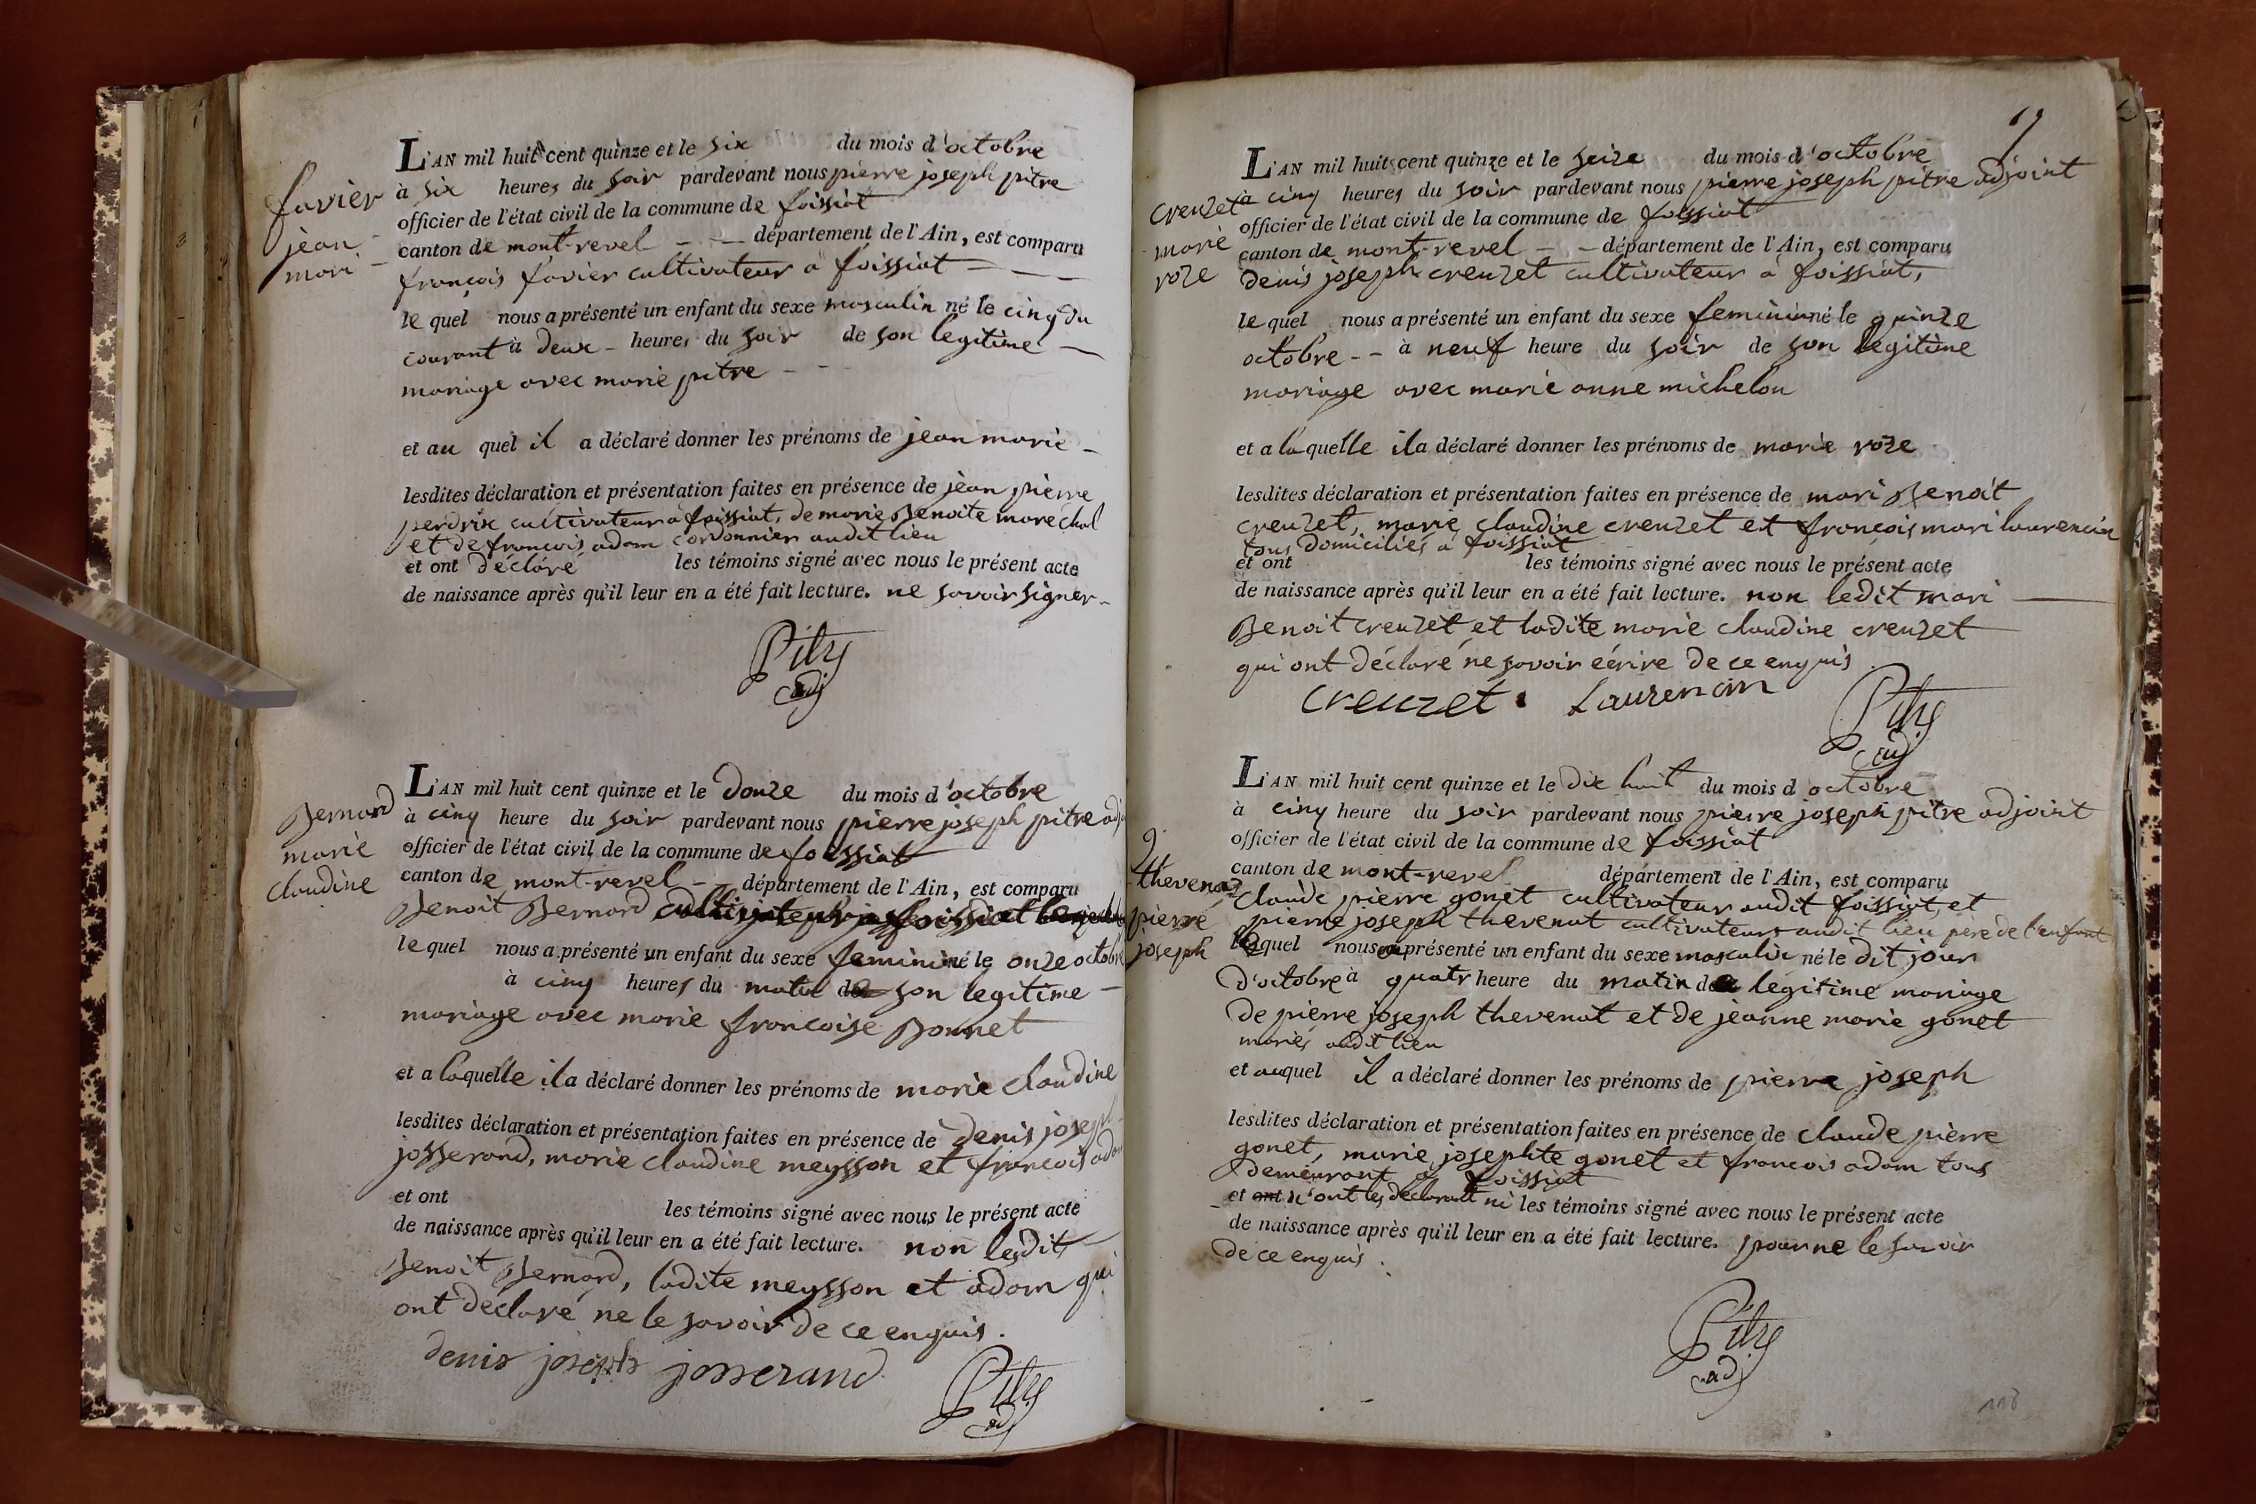 favier
jean
mari
L'AN mil huit cent quinze et le six du mois d'octobre
à six heures du soir pardevant nous pierre joseph pitre
officier de l'état civil de la commune de foissiat
canton de mont-revel - - département de l'Ain, est comparu
françois favier cultivateur a foissiat
le quel nous a présenté un enfant du sexe masculin né le cinq du
courant à deux - heures du soir de son legitime
mariage avec marie pitre - - -
et au quel il a déclaré donner les prénoms de jean marie -
lesdites déclaration et présentation faites en présence de jean pierre
perdrix cultivateur a foissiat, de marie Benoite marechal
et de françois adam cordonnier audit lieu
et ont déclaré les témoins signé avec nous le présent acte
de naissance après qu'il leur en a été fait lecture. ne savoir signer -
Pitre
adj
Bernard
marie
claudine
L'AN mil huit cent quinze et le douze du mois d'octobre
à cinq heure du soir pardevant nous pierre joseph pitre adj
officier de l'état civil de la commune de foissiat
canton de mont-revel - département de l'Ain, est comparu
Benoit Bernard
le quel nous a présenté un enfant du sexe feminin né le onze octobre
à cinq heures du matin de son legitime
mariage avec marie francoise Bonnet
et a laquelle il a déclaré donner les prénoms de marie claudine
lesdites déclaration et présentation faites en présence de denis joseph
josserand, marie claudine meysson et francois adam
et ont les témoins signé avec nous le présent acte
de naissance après qu'il leur en a été fait lecture. non ledit
Benoit Bernard, ladite meysson et adam qui
ont déclaré ne le savoir de ce enquis.
denis joseph josserand
Pitre
adj
creuzet
marie
roze
L'AN mil huit cent quinze et le seize du mois d'octobre
à cinq heures du soir pardevant nous pierre joseph pitre adjoint
officier de l'état civil de la commune de foissiat
canton de mont-revel - - département de l'Ain, est comparu
denis joseph creuzet cultivateur a foissiat,
le quel nous a présenté un enfant du sexe feminin né le quinze
octobre - - à neuf heure du soir de son legitime
mariage avec marie anne michelon
et a laquelle il a déclaré donner les prénoms de marie roze
lesdites déclaration et présentation faites en présence de mari Benoit
creuzet, marie claudine creuzet et françois mari laurencin
tous domiciliés a foissiat
et ont les témoins signé avec nous le présent acte
de naissance après qu'il leur en a été fait lecture. non ledit mari
Benoit creuzet et ladite marie claudine creuzet
qui ont déclaré ne savoir écrire de ce enquis
creuzet Laurencin
Pitre
adj
thevenat
pierre
joseph
L'AN mil huit cent quinze et le dix huit du mois d octobre
à cinq heure du soir pardevant nous pierre joseph pitre adjoint
officier de l'état civil de la commune de foissiat
canton de mont-revel département de l'Ain, est comparu
claude pierre gonet cultivateur audit foissiat, et
pierre joseph thevenat cultivateur audit lieu père de l'enfant
lequel nous a présenté un enfant du sexe masculin né le dit jour
d'octobre à quatr heure du matin de legitime mariage
de pierre joseph thevenat et de jeanne marie gonet
mariés audit lieu
et auquel il a déclaré donner les prénoms de pierre joseph
lesdites déclaration et présentation faites en présence de claude pierre
gonet, marie josephte gonet et francois adam tous
demeurant a foissiat
et ont n'ont les déclarant ni les témoins signé avec nous le présent acte
de naissance après qu'il leur en a été fait lecture. pour ne le savoir
de ce enquis.
Pitre
adj
118